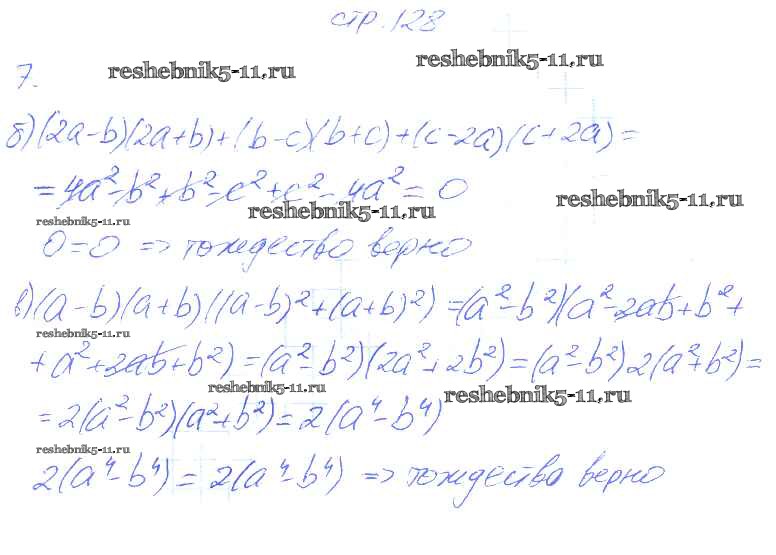 стр. 128
7.
reshebnik5-11.ru
reshebnik5-11.ru
б) (2a-b)(2a+b)+(b-c)(b+c)+(c-2a)(c+2a)=
= 4a²-b²+b²-c²+c²-4a²=0
reshebnik5-11.ru
reshebnik5-11.ru
reshebnik5-11.ru
0=0 => тождество верно
в) (a-b)(a+b)((a-b)²+(a+b)²) =(a²-b²)(a²-2ab+b²+
reshebnik5-11.ru
+a²+2ab+b²)=(a²-b²)(2a²+2b²)=(a²-b²)2(a²+b²)=
reshebnik5-11.ru
reshebnik5-11.ru
=2(a²-b²)(a²+b²)=2(a⁴-b⁴)
reshebnik5-11.ru
2(a⁴-b⁴)=2(a⁴-b⁴) => тождество верно